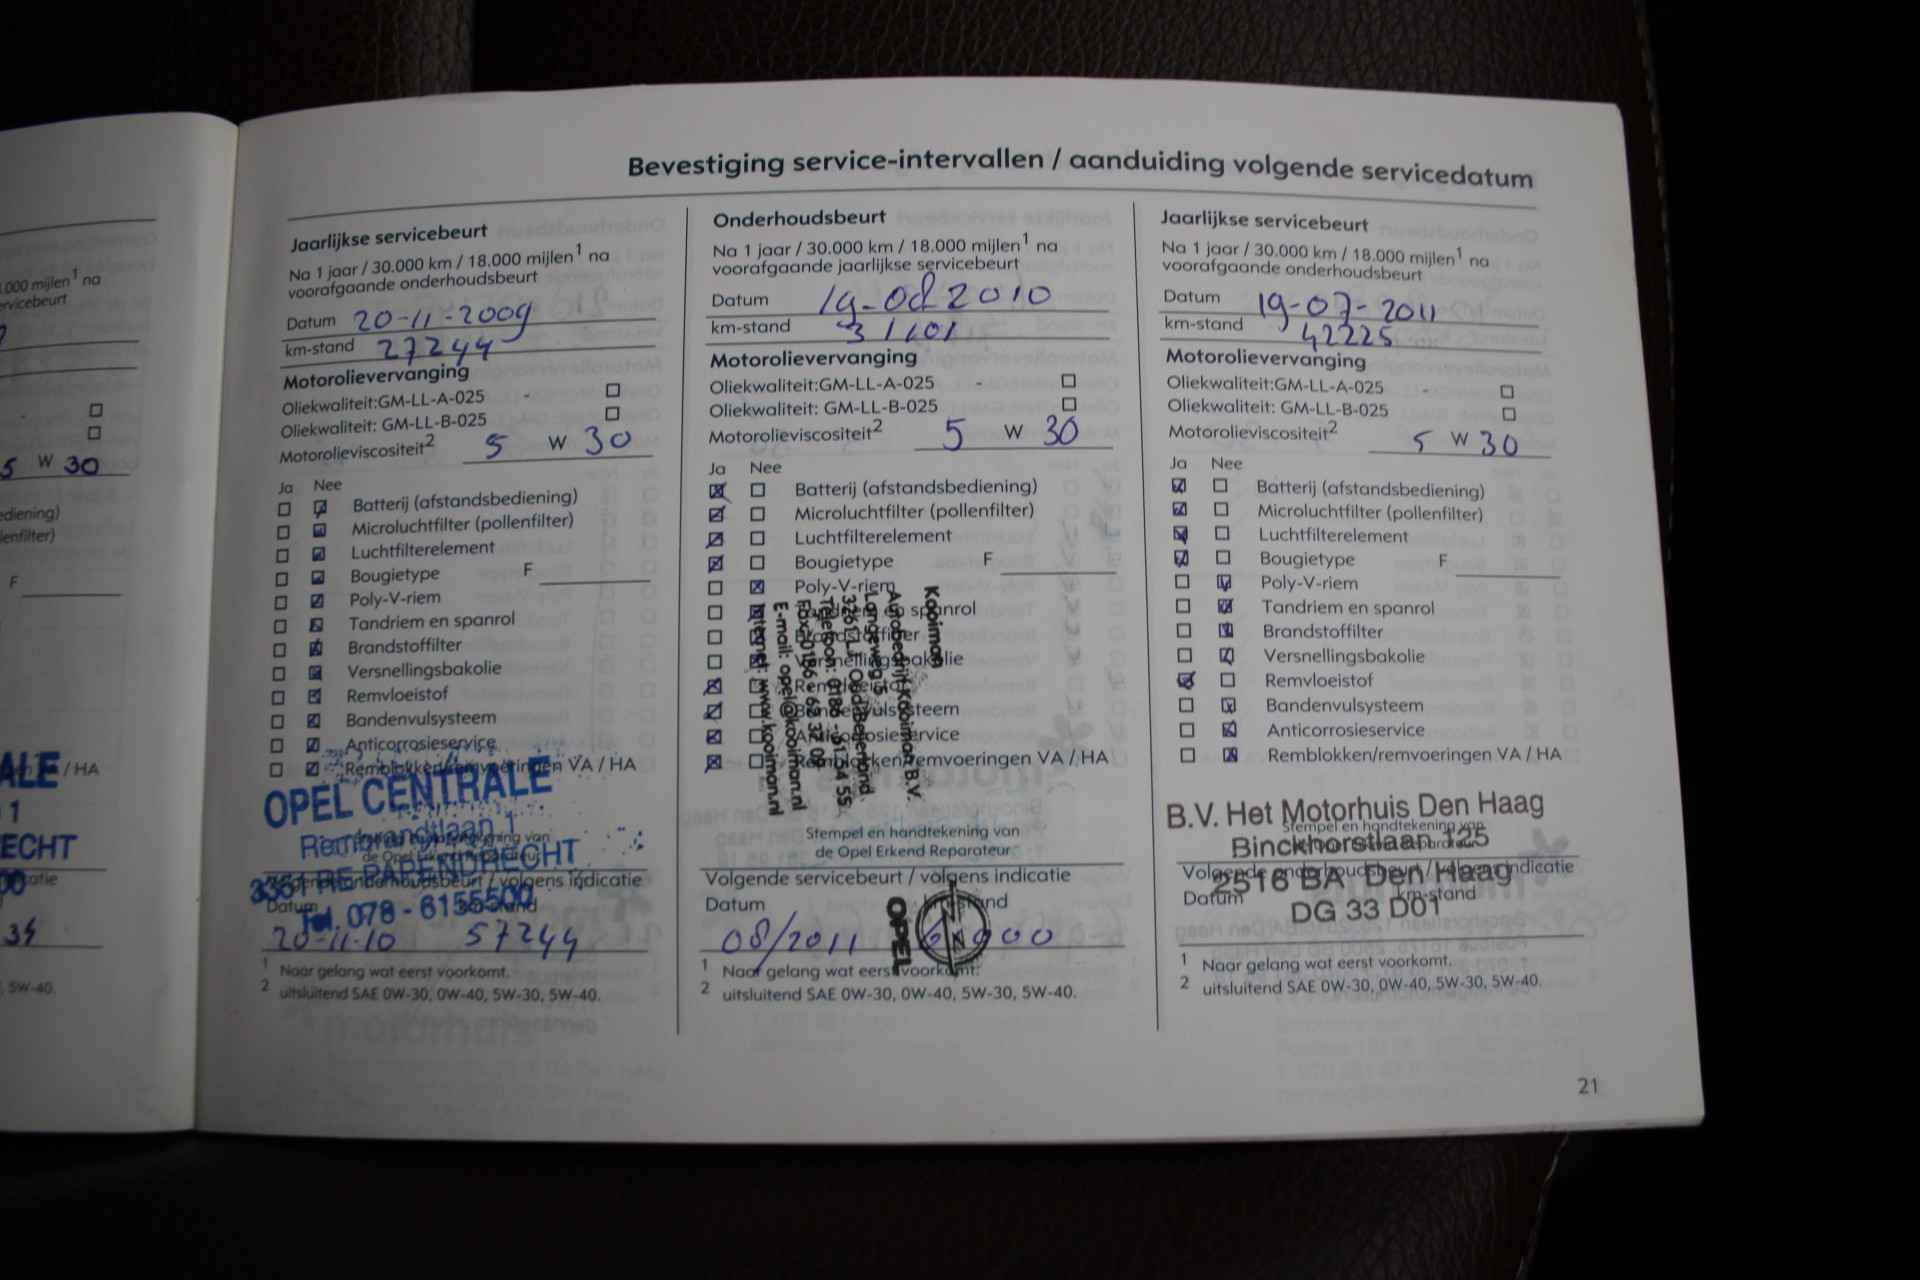 .000 mijlen1 na
ervicebeurt
5 W 30
ediening)
lenfilter)
F
/ HA
ALE
1
ECHT
00
catie
34
5W-40.
Bevestiging service-intervallen / aanduiding volgende servicedatum
Jaarlijkse servicebeurt
Na 1 jaar / 30.000 km / 18.000 mijlen1 na
voorafgaande onderhoudsbeurt
Datum 20-11-2009
km-stand 27244
Motorolievervanging
Oliekwaliteit:GM-LL-A-025 -
Oliekwaliteit: GM-LL-B-025
Motorolieviscositeit2 5 W 30
Ja Nee
Batterij (afstandsbediening)
Microluchtfilter (pollenfilter)
Luchtfilterelement
Bougietype F
Poly-V-riem
Tandriem en spanrol
Brandstoffilter
Versnellingsbakolie
Remvloeistof
Bandenvulsysteem
Anticorrosieservice
Remblokken/remvoeringen VA / HA
OPEL CENTRALE
Rembrandtlaan 1
de Opel Erkend Reparateur
3351 RE PAPENDRECHT
onderhoudsbeurt / volgens indicatie
Datum
Tel. 078 - 6155500
20-11-10 57244
1 Naar gelang wat eerst voorkomt.
2 uitsluitend SAE 0W-30, 0W-40, 5W-30, 5W-40.
Onderhoudsbeurt
Na 1 jaar / 30.000 km / 18.000 mijlen1 na
voorafgaande jaarlijkse servicebeurt
Datum 19-08 2010
km-stand 31401
Motorolievervanging
Oliekwaliteit:GM-LL-A-025 -
Oliekwaliteit: GM-LL-B-025
Motorolieviscositeit2 5 W 30
Ja Nee
Batterij (afstandsbediening)
Microluchtfilter (pollenfilter)
Luchtfilterelement
Bougietype F
Poly-V-riem
Tandriem en spanrol
Brandstoffilter
Versnellingsbakolie
Remvloeistof
Bandenvulsysteem
Anticorrosieservice
Remblokken/remvoeringen VA / HA
Kooiman
Autobedrijf Kooiman B.V.
Langeweg 5
Oud-Beijerland
Telefoon: 0186 - 61 54 55
Fax: 0186
E-mail: opel@kooiman.nl
Internet: www.kooiman.nl
Stempel en handtekening van
de Opel Erkend Reparateur
Volgende servicebeurt / volgens indicatie
Datum km-stand
OPEL
08/2011
1 Naar gelang wat eerst voorkomt.
2 uitsluitend SAE 0W-30, 0W-40, 5W-30, 5W-40.
Jaarlijkse servicebeurt
Na 1 jaar / 30.000 km / 18.000 mijlen1 na
voorafgaande onderhoudsbeurt
Datum 19-07-2011
km-stand 42225
Motorolievervanging
Oliekwaliteit:GM-LL-A-025 -
Oliekwaliteit: GM-LL-B-025
Motorolieviscositeit2 5 W 30
Ja Nee
Batterij (afstandsbediening)
Microluchtfilter (pollenfilter)
Luchtfilterelement
Bougietype F
Poly-V-riem
Tandriem en spanrol
Brandstoffilter
Versnellingsbakolie
Remvloeistof
Bandenvulsysteem
Anticorrosieservice
Remblokken/remvoeringen VA / HA
B.V. Het Motorhuis Den Haag
Stempel en handtekening van
Binckhorstlaan 125
Volgende onderhoudsbeurt / volgens indicatie
2516 BA Den Haag
Datum km-stand
DG 33 D01
1 Naar gelang wat eerst voorkomt.
2 uitsluitend SAE 0W-30, 0W-40, 5W-30, 5W-40.
21